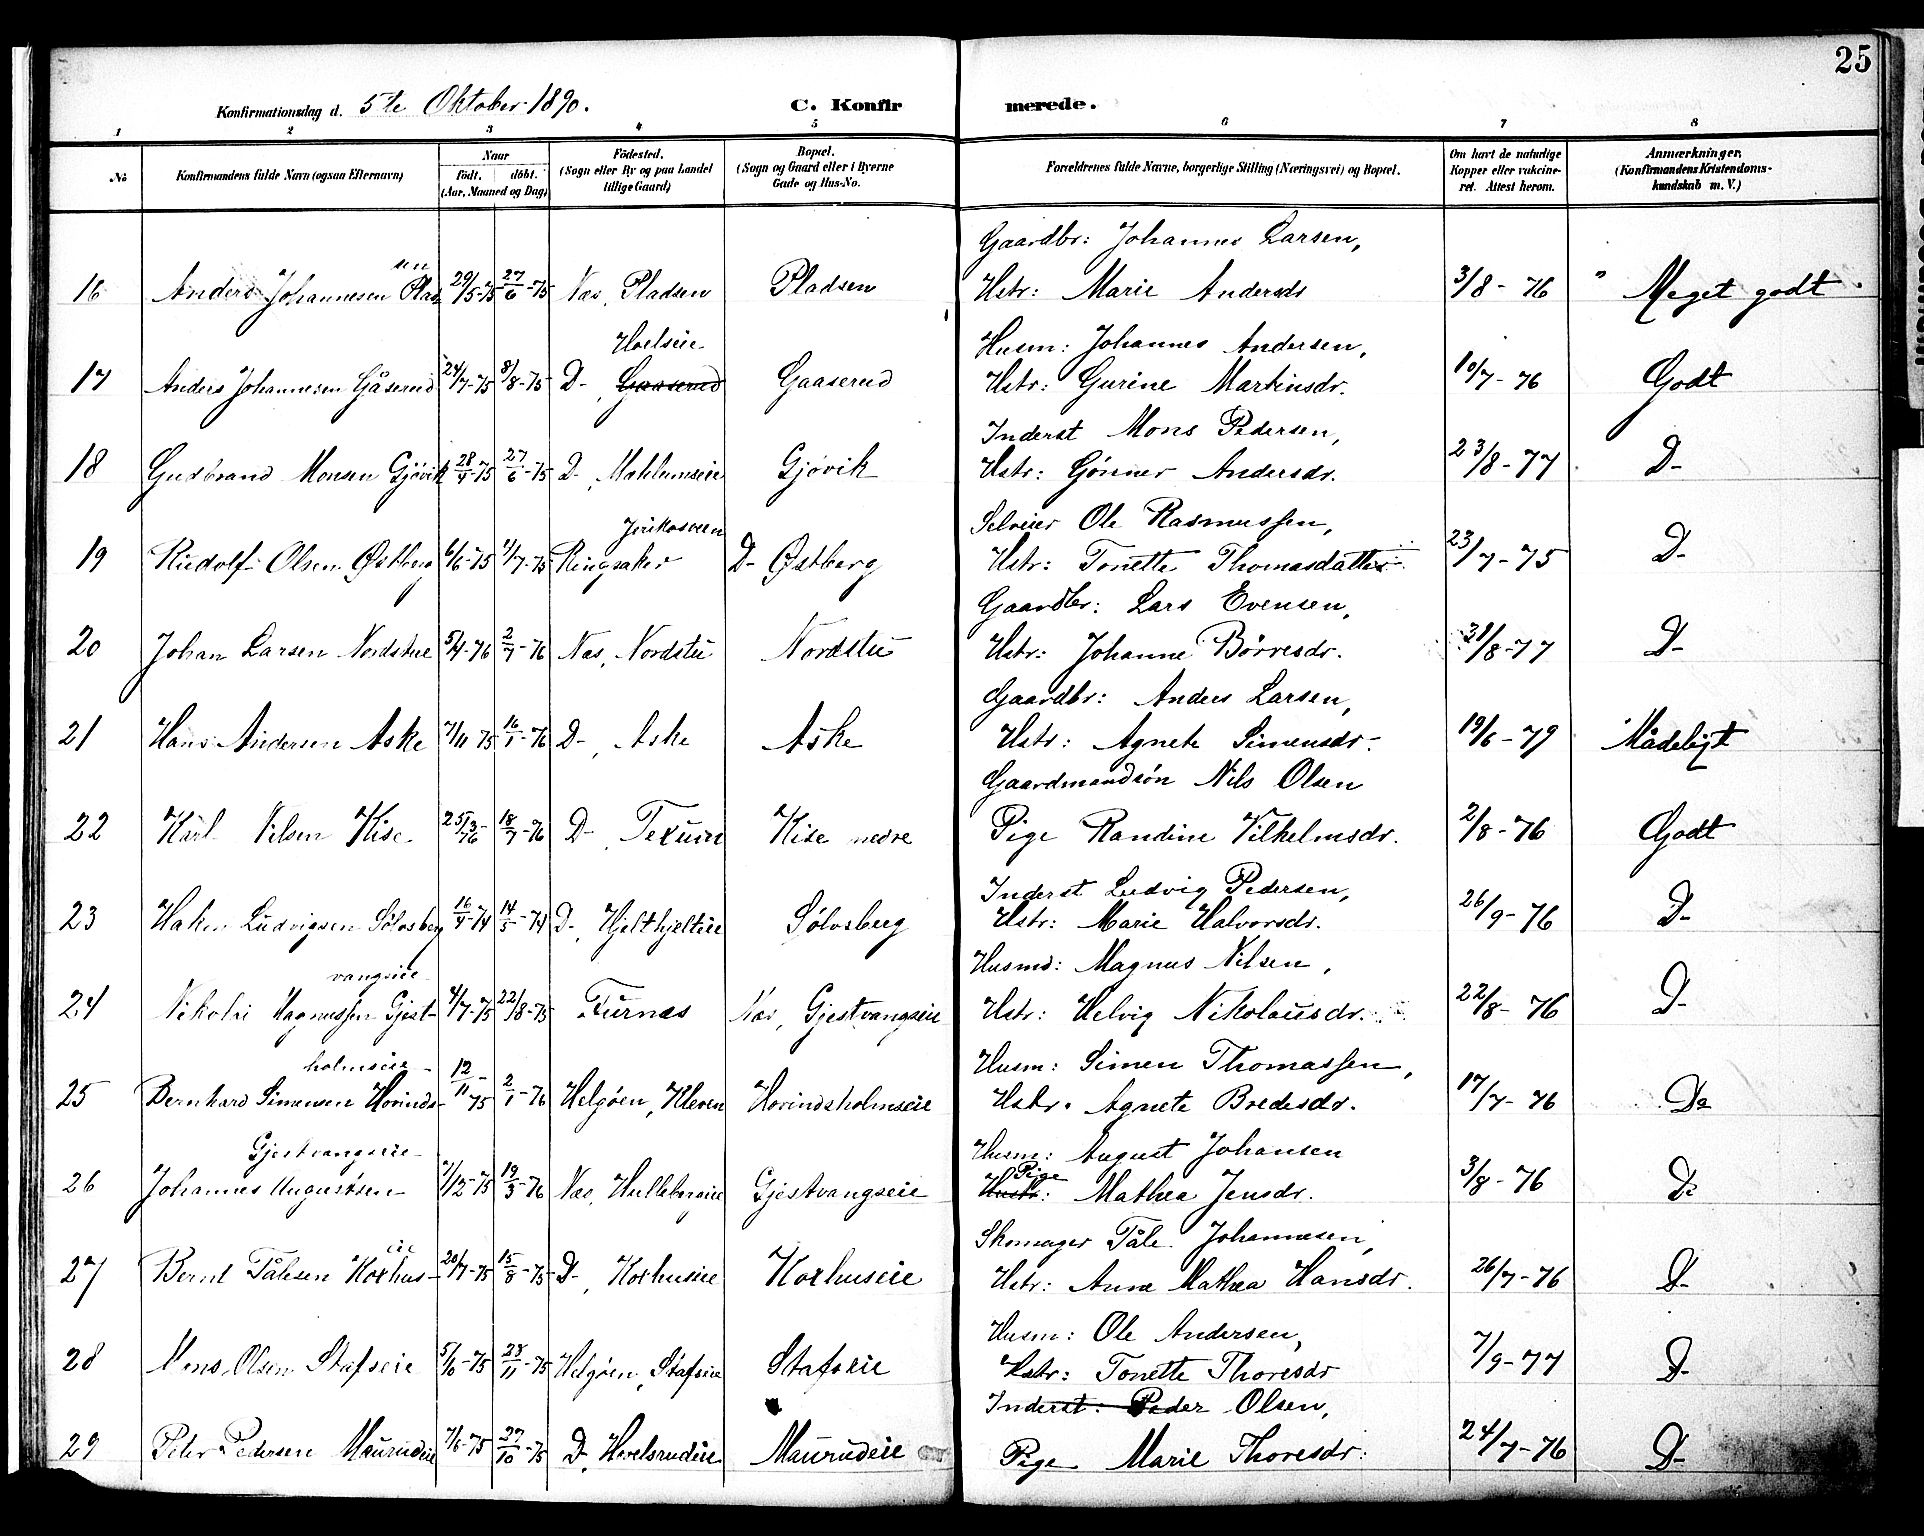 25
Konfirmationsdag d. 5te Oktober 1890.
C. Konfirmerede.
1 2 3 4 5 6 7 8
No
Konfirmandens fulde Navn (ogsaa Efternavn)
Naar
født. døbt.
(Aar, Maaned og Dag)
Fødested.
(Sogn eller By og paa Landet
tillige Gaard)
Bopæl.
(Sogn og Gaard eller i Byerne
Gade og Hus-No.
Forældrenes fulde Navne, borgerlige Stilling (Næringsvei) og Bopæl.
Om havt de naturlige
Kopper eller vakcine-
ret. Attest herom.
Anmærkninger.
(Konfirmandens Kristendoms-
kundskab m. V.)
sen Gaardbr: Johannes Larsen,
16 Anders Johannesen Plad 29/5-75 27/6-75 Næs, Pladsen Pladsen Hstr: Marie Andersdr 3/8-76 Meget godt
Hoelseie Husm: Johannes Andersen,
17 Anders Johannesen Gåserud 24/7-75 8/8-75 D-, Gaaserud Gaaserud Hstr: Gurine Martinsdr. 10/7-76 Godt
Inderst Mons Pedersen,
18 Gudbrand Monsen Gjøvik 28/4-75 27/6-75 D-, Gjøvik Hstr: Gønner Andersdr. 23/8-77 D-
Selveier Ole Rasmussen,
19 Rudolf Olsen Østberg 6/6-75 11/7-75 Ringsaker D- Østberg Hstr: Tonette Thomasdatter 23/7-75 D-
Gaardbr: Lars Evensen,
20 Johan Larsen Nordstue 5/4-76 2/7-76 Næs, Nordstu Nordstu Hstr: Johanne Børresdr. 31/8-77 D-
Gaardbr: Anders Larsen,
21 Hans Andersen Aske 7/11-75 16/1-76 D-, Aske Aske Hstr: Agnete Simensdr. 19/6-79 Mådeligt
Gaardmandsøn Nils Olsen
22 Karl Nilsen Kise 25/3-76 18/7-76 D-, Texum Kise nedre Pige Randine Vilhelmsdr. 2/8-76 Godt
Inderst Ludvig Pedersen,
23 Haken Ludvigsen Sølvsberg 16/4-74 14/5-74 D-, Sølvsberg Hstr: Marie Halvorsdr. 26/9-76 D-
vangseie Husmd: Magnus Nilsen,
24 Nikolai Magnussen Gjest- 4/7-75 22/8-75 Furnæs Næs, Gjestvangseie Hstr: Helvig Nikolausdr. 22/8-76 D-
holmseie Husm: Simen Thomassen,
25 Bernhard Simensen Hovinds- 12/11-75 2/1-76 Helgøen, Kleven Hovindsholmseie Hstr. Agnete Bredesdr. 17/7-76 Do
Gjestvangseie Husm: August Johansen
26 Johannes Augustsen 7/12-75 19/3-76 Næs, Gjestvangseie Hustr: Pige Mathea Jensdr. 3/8-76 Do
eie Skomager Påle Johannesen,
27 Bernt Pålesen Korhus- 20/7-75 15/8-75 D-, Korhuseie Korhuseie Hstr: Anne Mathea Hansdr. 26/7-76 D-
Husm: Ole Andersen,
28 Mons Olsen Stafseie 28/11-75 Helgøen, Stafseie Stafseie Hstr: Tonette Thoresdr 7/9-77 D-
Inderst: Peder Olsen,
29 Peter Pedersen Maurudeie 7/6-75 27/10-75 D-, Hovelsrudeie Maurudeie Pige Marie Thoresdr: 24/7-76 D-